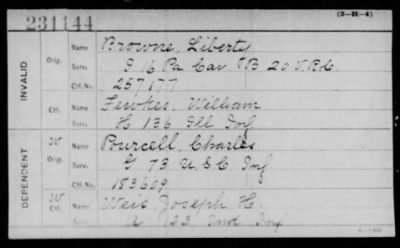 231144
(3-H-4)
INVALID
Orig.
Name Browne, Liberty
Serv. G. 16 Pa Cav & B 20 V.R.C.
Ctf. No. 257177
Ctf.
Name Fewkes, William
Serv. H 136 Ill Inf
DEPENDENT
W
Orig.
Name Burcell, Charles
Serv. G 73 U.S.C. Inf
Ctf. No. 183609
W
Ctf.
Name Weis Joseph H.
Serv. A 22 Ind Inf